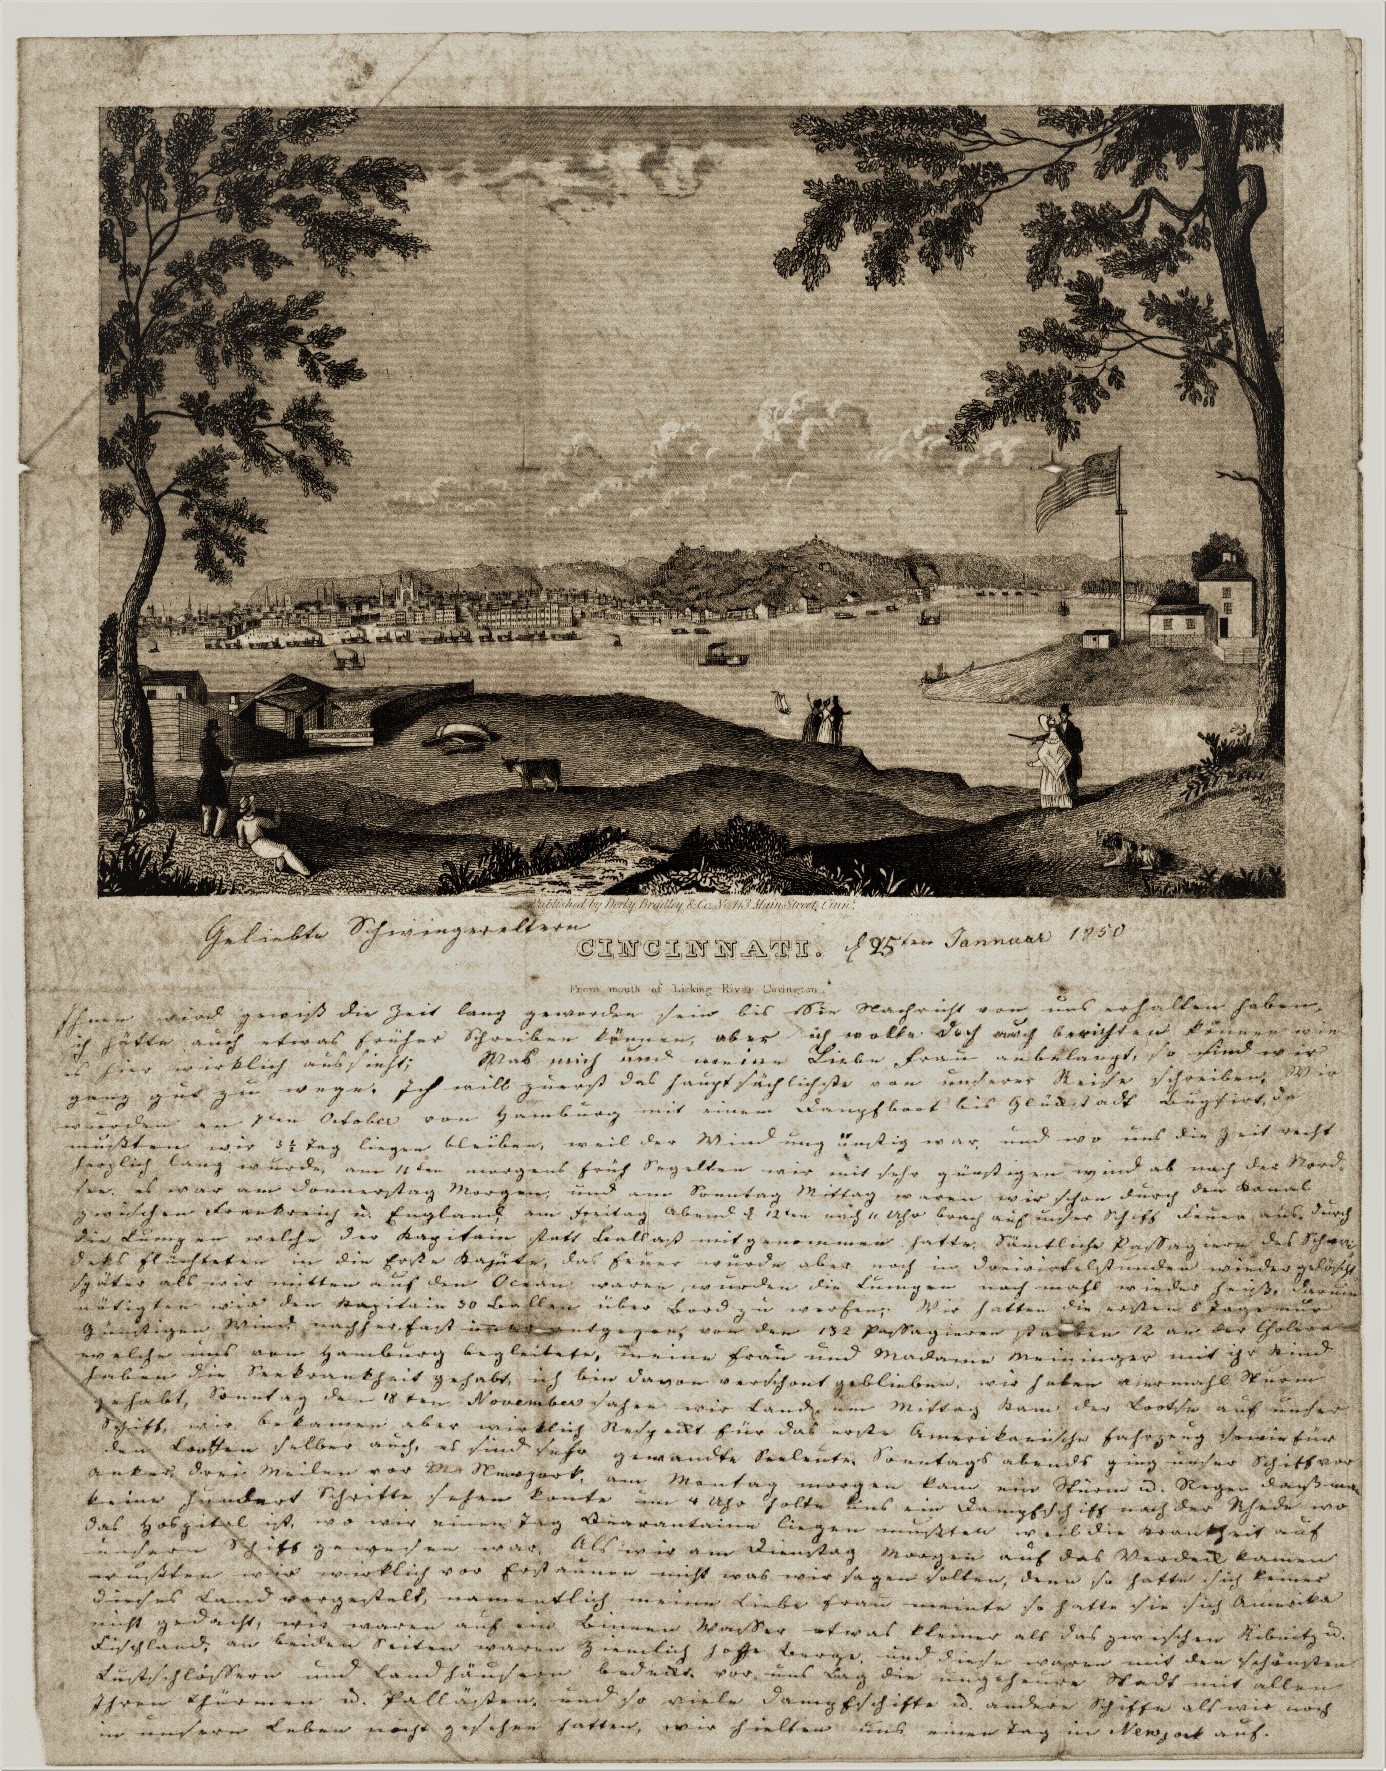 Published by Derby, Bradley & Co. No. 113 Main Street, Cinn.
Geliebte Schwiegereltern
CINCINNATI. d 25ten Jannuar 1850
From mouth of Licking River Covington.
Ihnen wird gewiß die Zeit lang geworden sein bis Sie Nachricht von uns erhalten haben,
ich hätte auch etwas früher Schreiben können, aber ich wollte doch auch berichten können wie
es hier wirklich aussieht; Was mich und meine Liebe Frau anbelangt, so sind wir
ganz gut zu wege. Ich will zuerst das hauptsächlichste von unserer Reise schreiben, Wir
wurden an 7ten October von Hamburg mit einem Dampfboot bis Glückstadt Bugsirt, Da
mußten wir 3½ Tag liegen bleiben, weil der Wind ungünstig war, und wo uns die Zeit recht
herzlich lang wurde, am 11ten morgens früh Segelten wir mit sehr günstigen wind ab nach der Nord-
see, es war am Donnerstag Morgen, und am Sonntag Mittag waren wir schon durch den Kanal
zwischen Frankreich u. England, am Freitag Abend d 12ten nach 11 Uhr brach auf unser Schiff Feuer aus, durch
die Lumpen welche der Kapitain statt Balast mitgenommen hatte, Sämtliche Passagiere des
deks flüchteten in die Erste Kajüte, das Feuer wurde aber noch in Dreiviertelstunden wieder gelöscht
später als wir mitten auf den Ocean waren, wurden die Lumpen noch mahl wieder heiß, darum
nötigten wir den Kapitain 30 Ballen über Bord zu werfen; Wir hatten die ersten 8 Tage nur
Günstigen Wind nachher fast immer entgegen, von den 132 Passagieren starben 12 an der Cholera
welche uns von Hamburg begleitete, meine Frau und Madame Meininger mit ihr Kind
haben die Seekrankheit gehabt, ich bin davon verschont geblieben, wir haben viermahl Sturm
gehabt, Sonntag den 18ten November sahen wir Land, am Mittag kam der Lootse auf unser
Schiff, wir bekamen aber wirklich Respeckt für das erste Amerikanische Fahrzeug sowie für
den Lootsen selber auch, es sind sehr gewandte Seeleute, Sonntags abends ging unser Schiff vor
anker, drei Meilen vor Newyork, am Montag morgen kam ein Sturm u. Regen daß man
keine hundert Schritte sehen konte um 4 Uhr holte uns ein Dampfschiff nach der Rhede wo
das Hospital ist, wo wir einen Tag Quarantaine liegen mußten weil die Krankheit auf
unsern Schiff gewesen war. Als wir am Dienstag Morgen auf das Verdeck kamen
wußten wir wirklich vor Erstaunen nicht was wir sagen solten, denn so hatte sich keiner
dieses Land vorgestelt, namentlich meine Liebe Frau meinte so hatte sie sich Amerika
nicht gedacht, wir waren auf ein Binnen Wasser etwas kleiner als das zwischen Ribnitz u.
Fischland, an beiden Seiten waren Ziemlich hohe Berge, und diese waren mit den schönsten
Lustschlössern und Landhäusern bedeckt. vor uns Lag die ungeheure Stadt mit allen
Ihren Thürmen u. Pallästen, und so viele Dampfschiffe u. andere Schiffe als wir noch
in unsern Leben nicht gesehen hatten, wir hielten uns einen Tag in Newyork auf.